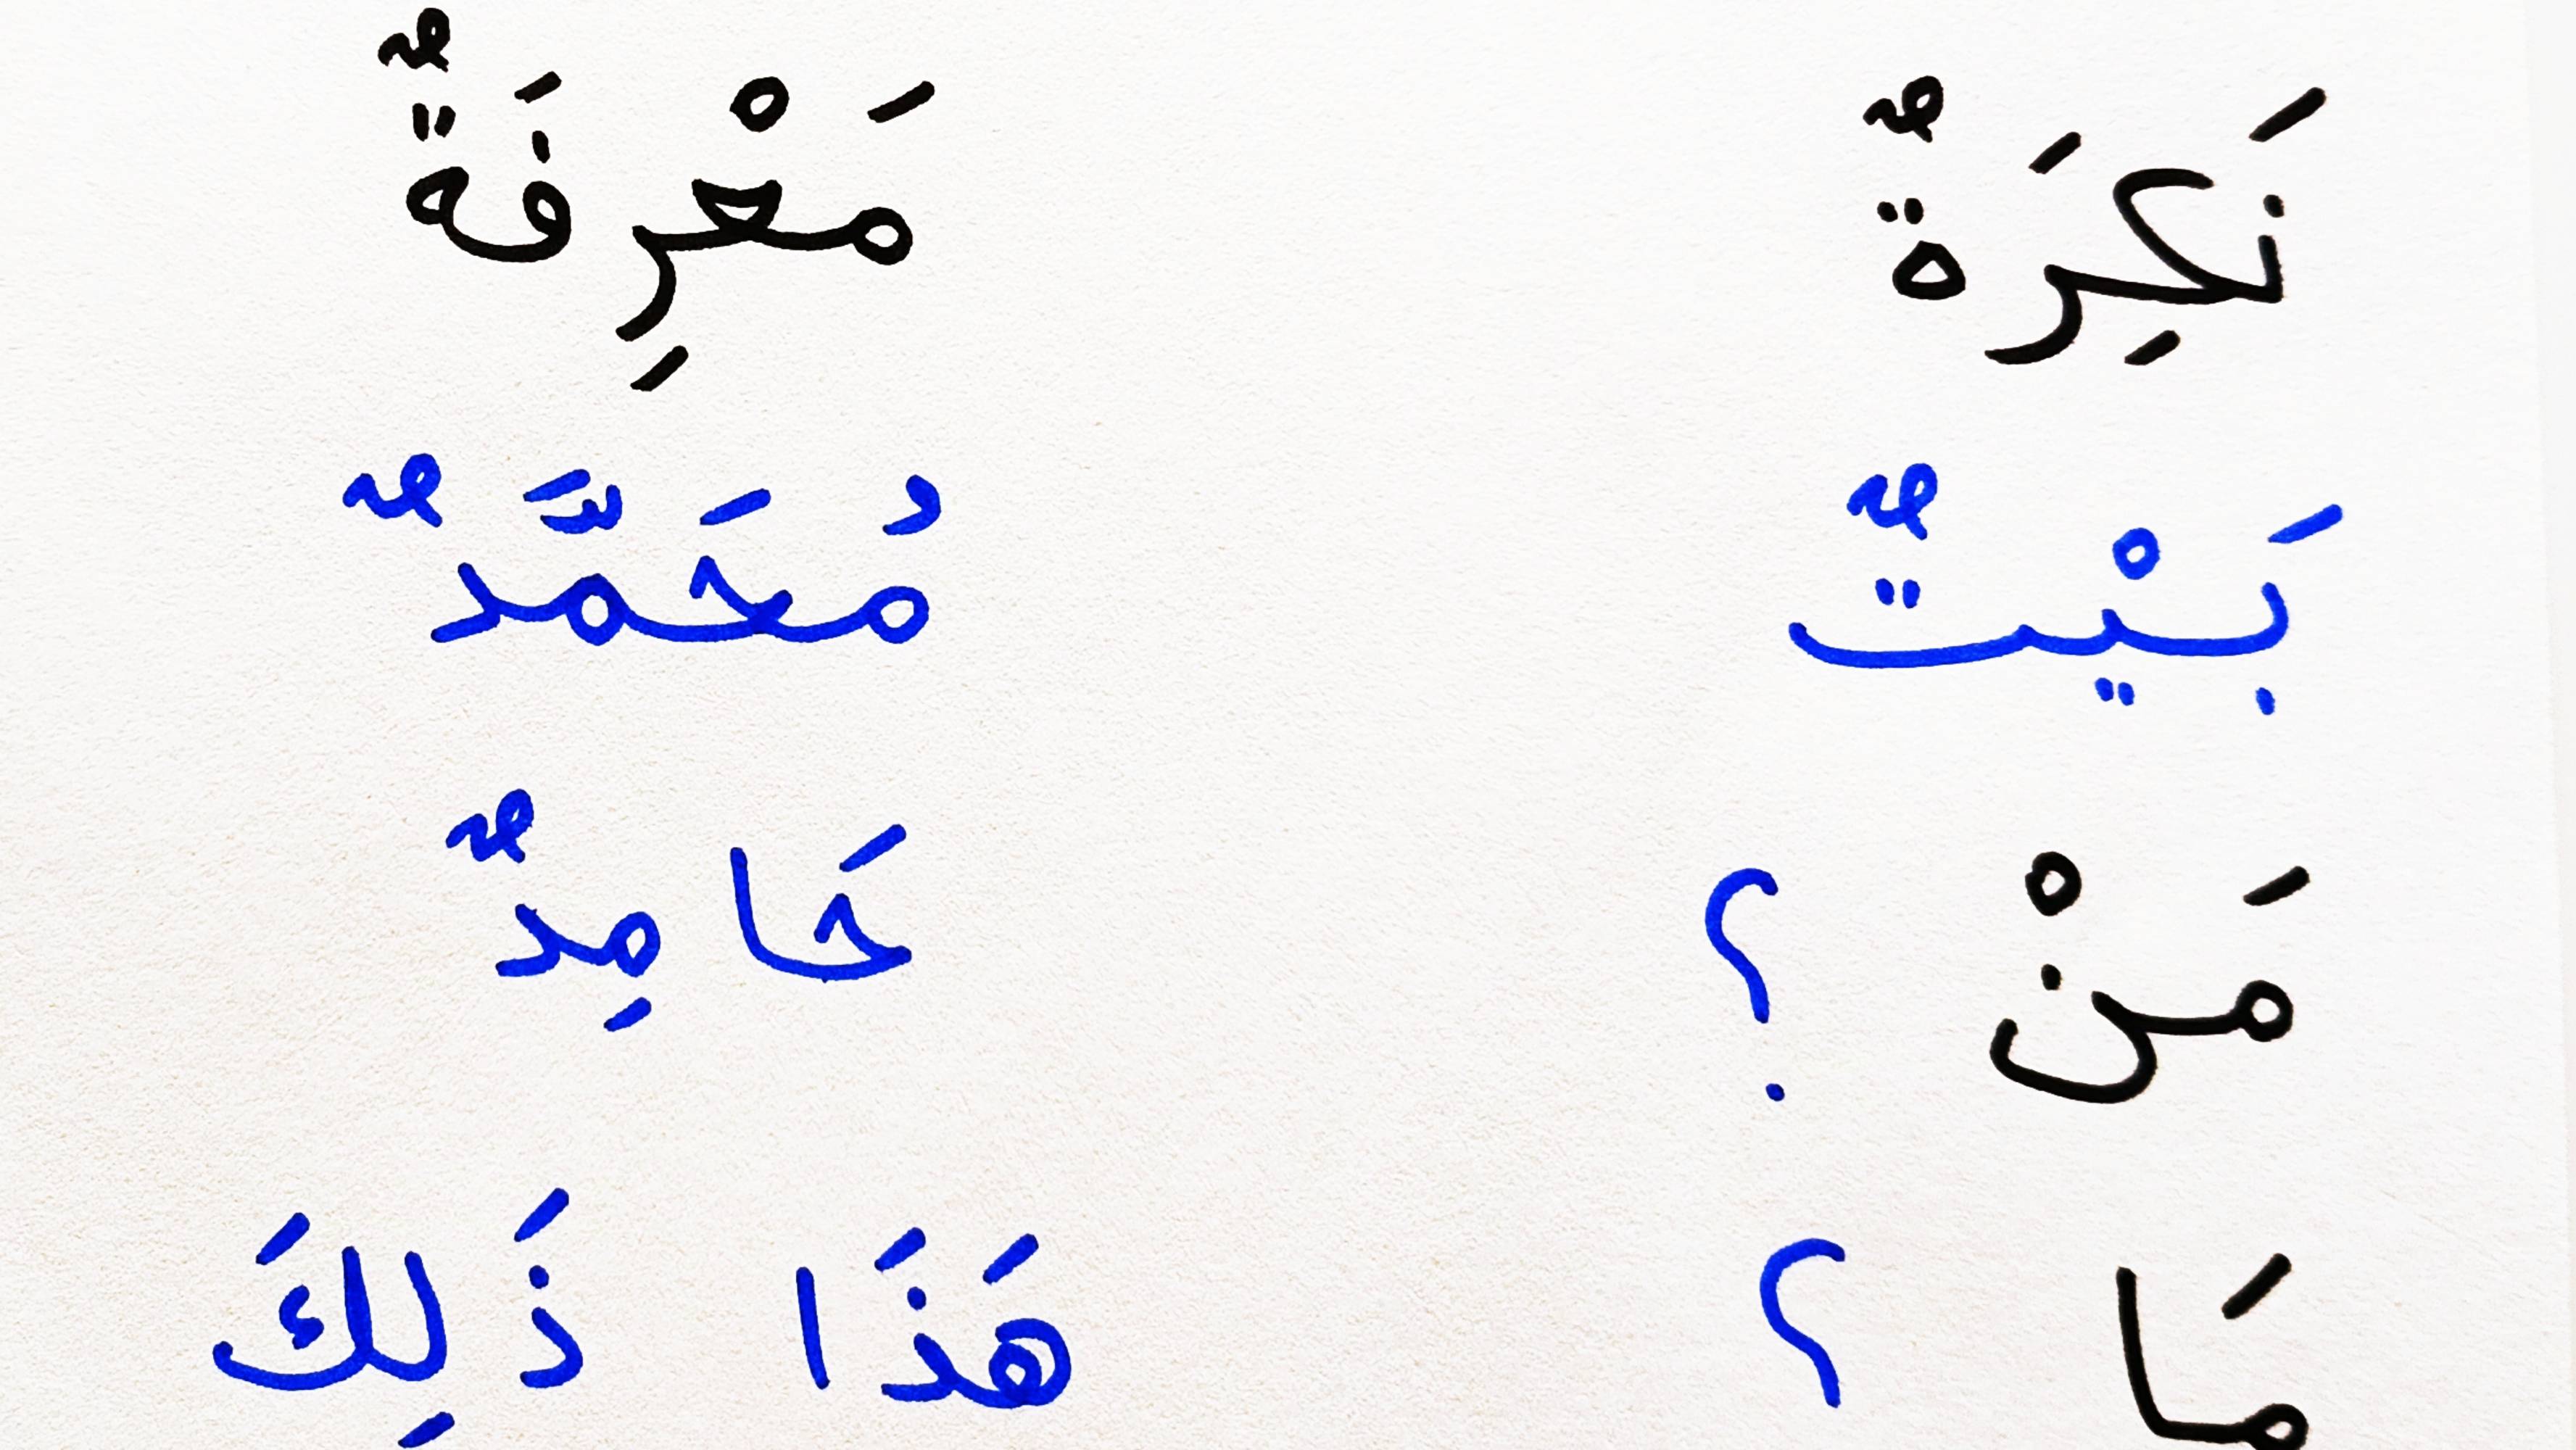 نَكِرَةٌ مَعْرِفَةٌ
بَيْتٌ مُحَمَّدٌ
مَنْ ؟ حَامِدٌ
مَا ؟ هَذَا ذَلِكَ